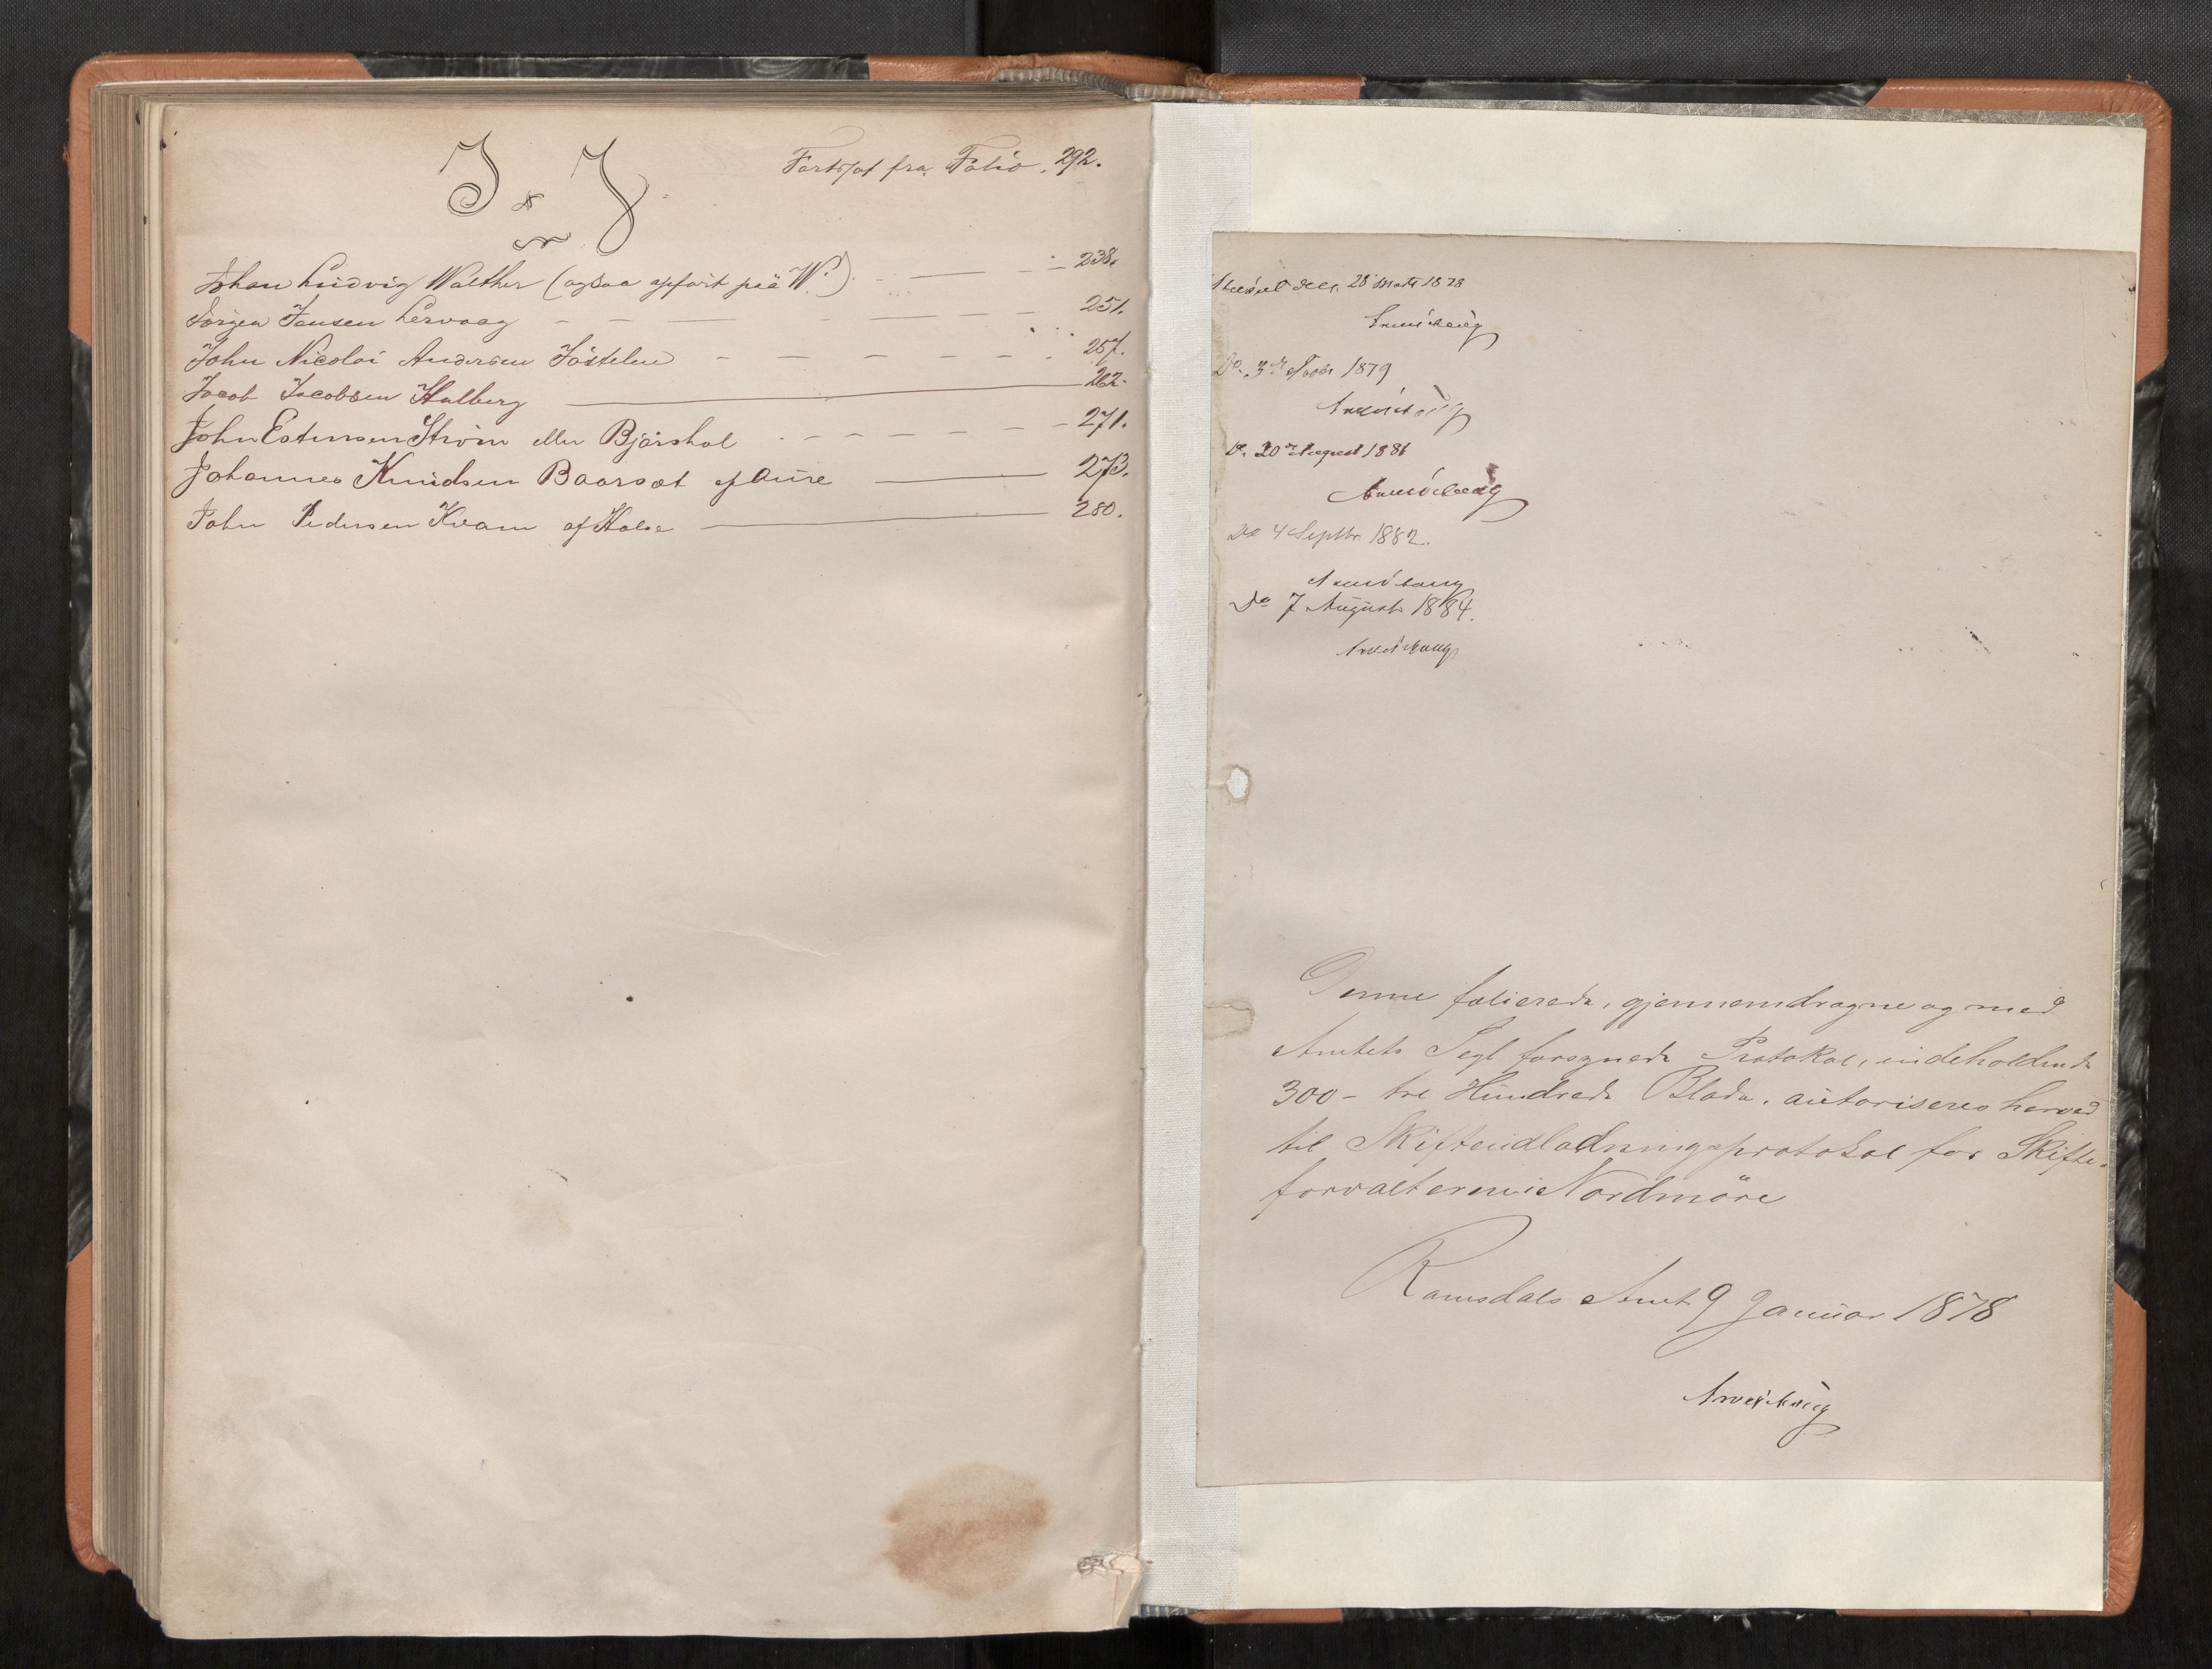 I & J.
Fortsat fra Folio 292.
Johan Ludvig Walther (ogsaa opført paa W.) 238.
Jørgen Jansen Lervaag 251.
John Nicolai Andersen Jøstelen 257.
Jacob Jacobsen Stalberg 262.
John Estensen Strøm eller Bjørshol 271.
Johannes Knudsen Baarsæt af Aure 273.
John Pedersen Kvam af Halse 280.
den 28 Marts 1878
Do. 3die 1879
Do. 20de August 1881
Do 4 Septbr 1882.
Do 7 August 1884.
Denne folierede, gjennemdragne og med
Amtets Segl forsynede Protokol, indeholdende
300 - tre Hundrede Blade, autoriseres herved
til Skifteudlodningsprotokol for Skifte-
forvalteren i Nordmøre
Romsdals Amt 9 Januar 1878